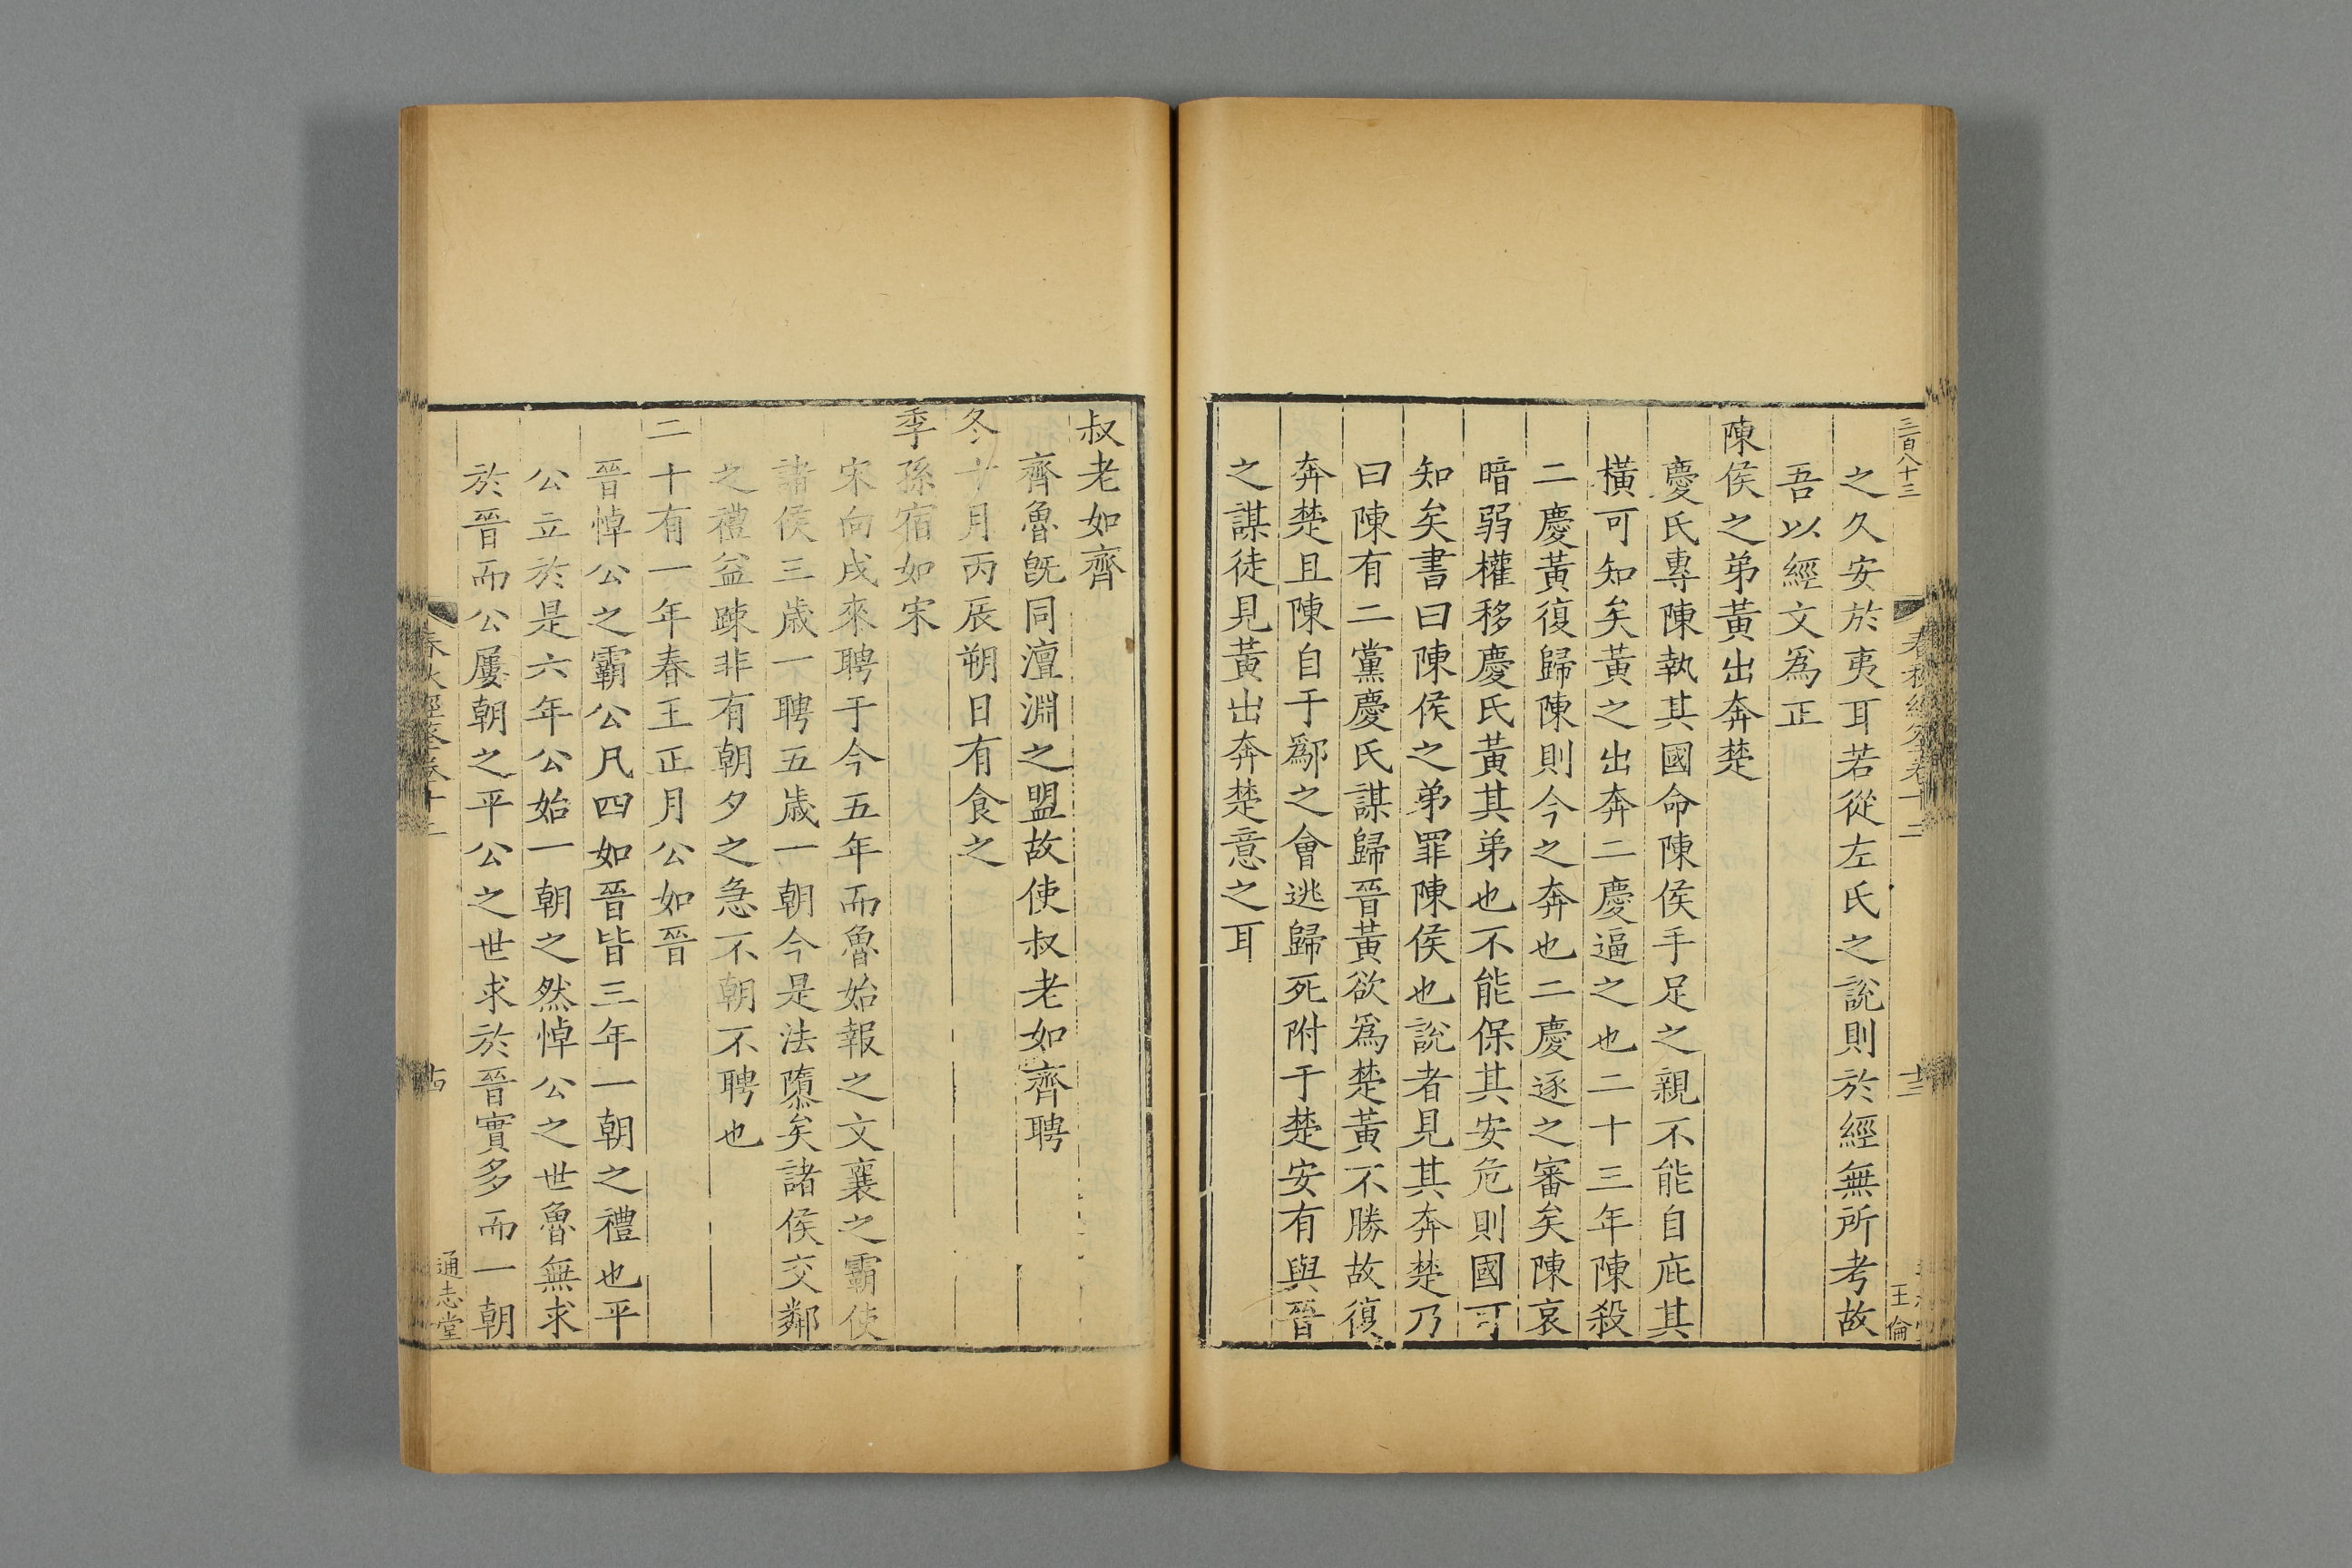 三百八十三
之久安於夷耳若從左氏之說則於經無所考故
吾以經文為正
陳侯之弟黃出奔楚
慶氏專陳執其國命陳侯手足之親不能自庇其
橫可知矣黃之出奔二慶逼之也二十三年陳殺
二慶黃復歸陳則今之奔也二慶逐之審矣陳哀
暗弱權移慶氏黃其弟也不能保其安危則國可
知矣書曰陳侯之弟罪陳侯也說者見其奔楚乃
曰陳有二黨慶氏謀歸晉黃欲為楚黃不勝故復
奔楚且陳自于鄬之會逃歸死附于楚安有與晉
之謀徒見黃出奔楚意之耳
十三
王倫
叔老如齊
齊魯旣同澶淵之盟故使叔老如齊聘
冬十月丙辰朔日有食之
季孫宿如宋
宋向戌來聘于今五年而魯始報之文襄之霸使
諸侯三歲一聘五歲一朝今是法隳矣諸侯交鄰
之禮益踈非有朝夕之急不朝不聘也
二十有一年春王正月公如晉
晉悼公之霸公凡四如晉皆三年一朝之禮也平
公立於是六年公始一朝之然悼公之世魯無求
於晉而公屢朝之平公之世求於晉實多而一朝
通志堂